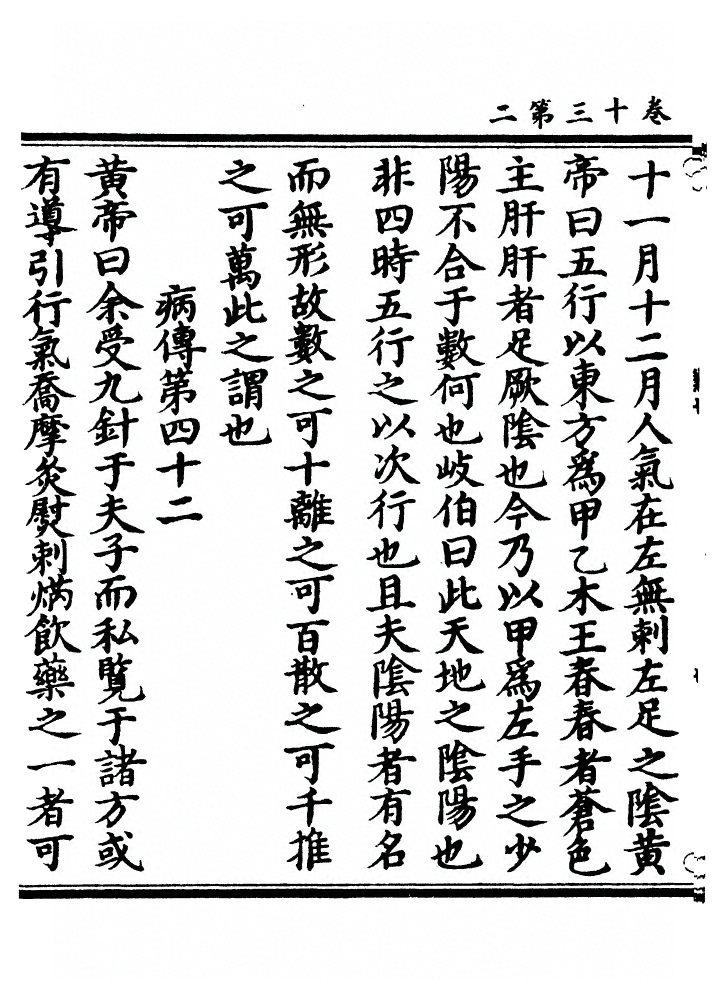 卷十三第二
十一月十二月人氣在左無刺左足之陰黃
帝曰五行以東方為甲乙木王春春者蒼色
主肝肝者足厥陰也今乃以甲為左手之少
陽不合于數何也岐伯曰此天地之陰陽也
非四時五行之以次行也且夫陰陽者有名
而無形故數之可十離之可百散之可千推
之可萬此之謂也
病傳第四十二
黃帝曰余受九針于夫子而私覽于諸方或
有導引行氣喬摩灸熨刺焫飲藥之一者可